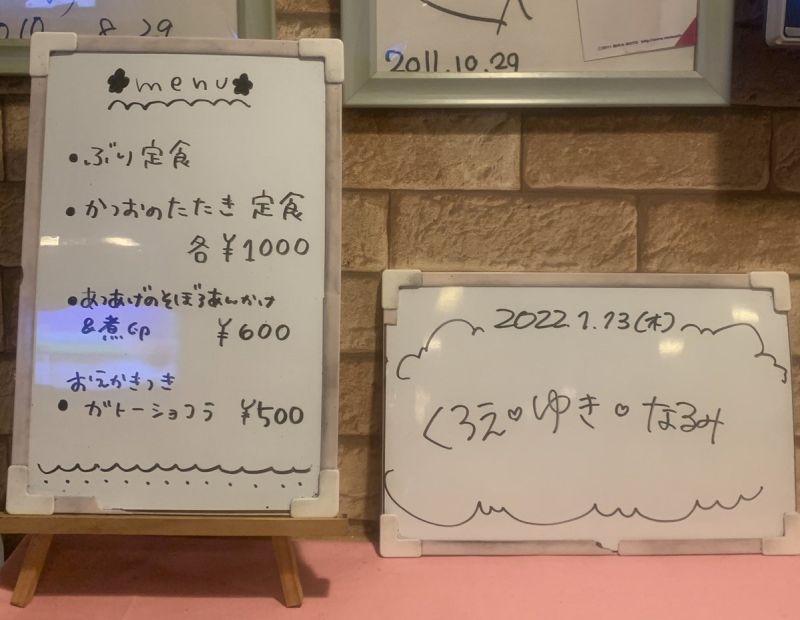 2011.10.29
menu
•ぶり定食
•かつおのたたき 定食
各¥1000
•あつあげのそぼろあんかけ
&煮 ¥600
おえかきつき
•ガトーショコラ ¥500
2022.1.13(木)
くろえ♡ゆき♡なるみ